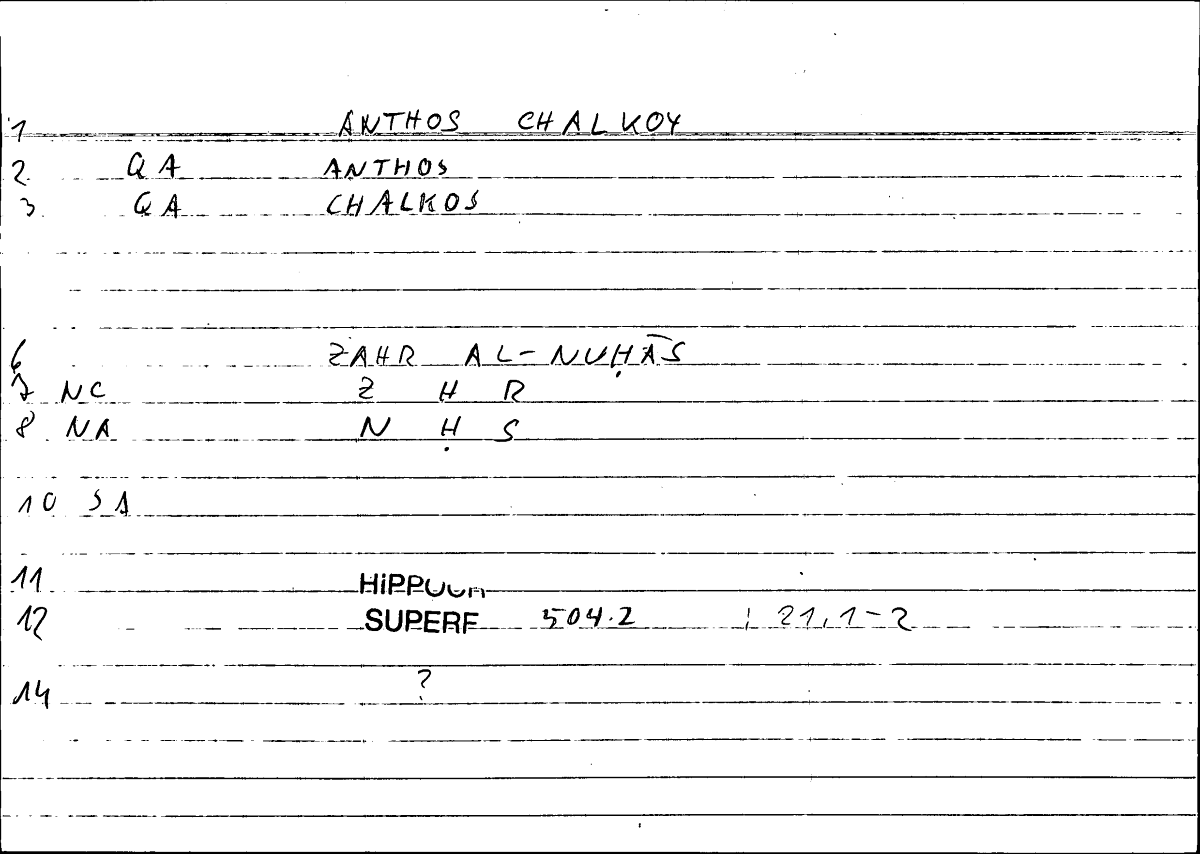 1 ANTHOS CHALKOY
2 QA ANTHOS
3 QA CHALKOS
6 ZAHR AL-NUḤĀS
7 NC Z H R
8 NA N Ḥ S
10 SA
11
12 SUPERF 504.2 21,1-2
14 ?